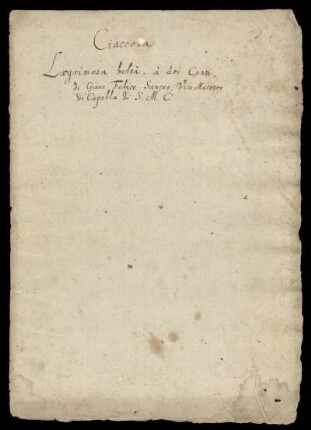 Ciaccona
Lagrimosa beltà. à doi Canti.
di Giovan Felice Sances, Vice Maestro
di Capella di S. M. C.